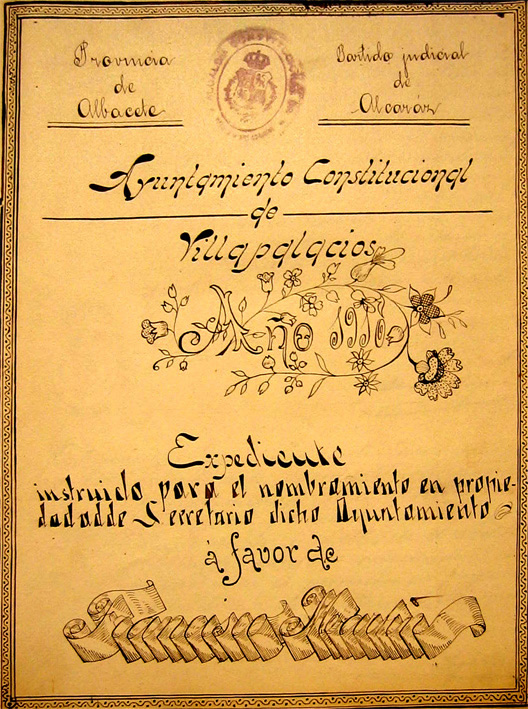 Provincia
de
Albacete
Partido judicial
de
Alcaráz
Ayuntamiento Constitucional
de
Villapalacios
Año 1910
Expediente
instruido para el nombramiento en propie-
dadadde Secretario dicho Ayuntamiento
á favor de
Francisco Martín